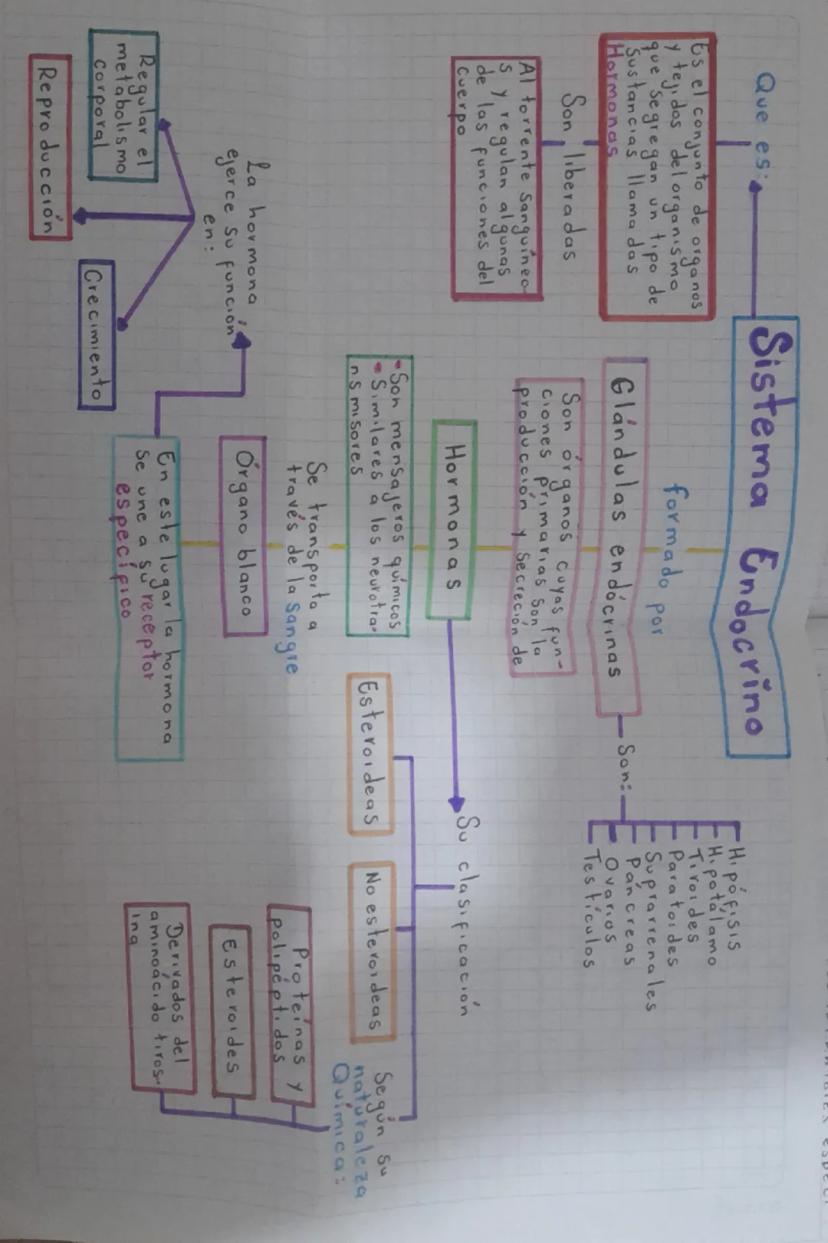 Sistema Endocrino
Que es:
Es el conjunto de organos
y tejidos del organismo
que segregan un tipo de
sustancias llamadas
Hormonas
Son liberadas
Al torrente sanguíneo
s y regulan algunas
de las funciones del
cuerpo
formado por
Glándulas endócrinas
Son:
Hipófisis
Hipotálamo
Tiroides
Paratoides
Suprarrenales
Páncreas
Ovarios
Testículos
Son órganos cuyas fun-
ciones primarias son la
producción y secreción de
Hormonas
• Son mensajeros químicos
• Similares a los neurotra-
nsmisores
Se transporta a
través de la sangre
Órgano blanco
En este lugar la hormona
se une a su receptor
específico
La hormona
ejerce su función
en:
Regular el
metabolismo
corporal
Reproducción
Crecimiento
Su clasificación
Esteroideas
No esteroideas
Según su
naturaleza
Química:
Proteínas y
polipéptidos
Esteroides
Derivados del
aminoácido tiros-
ina